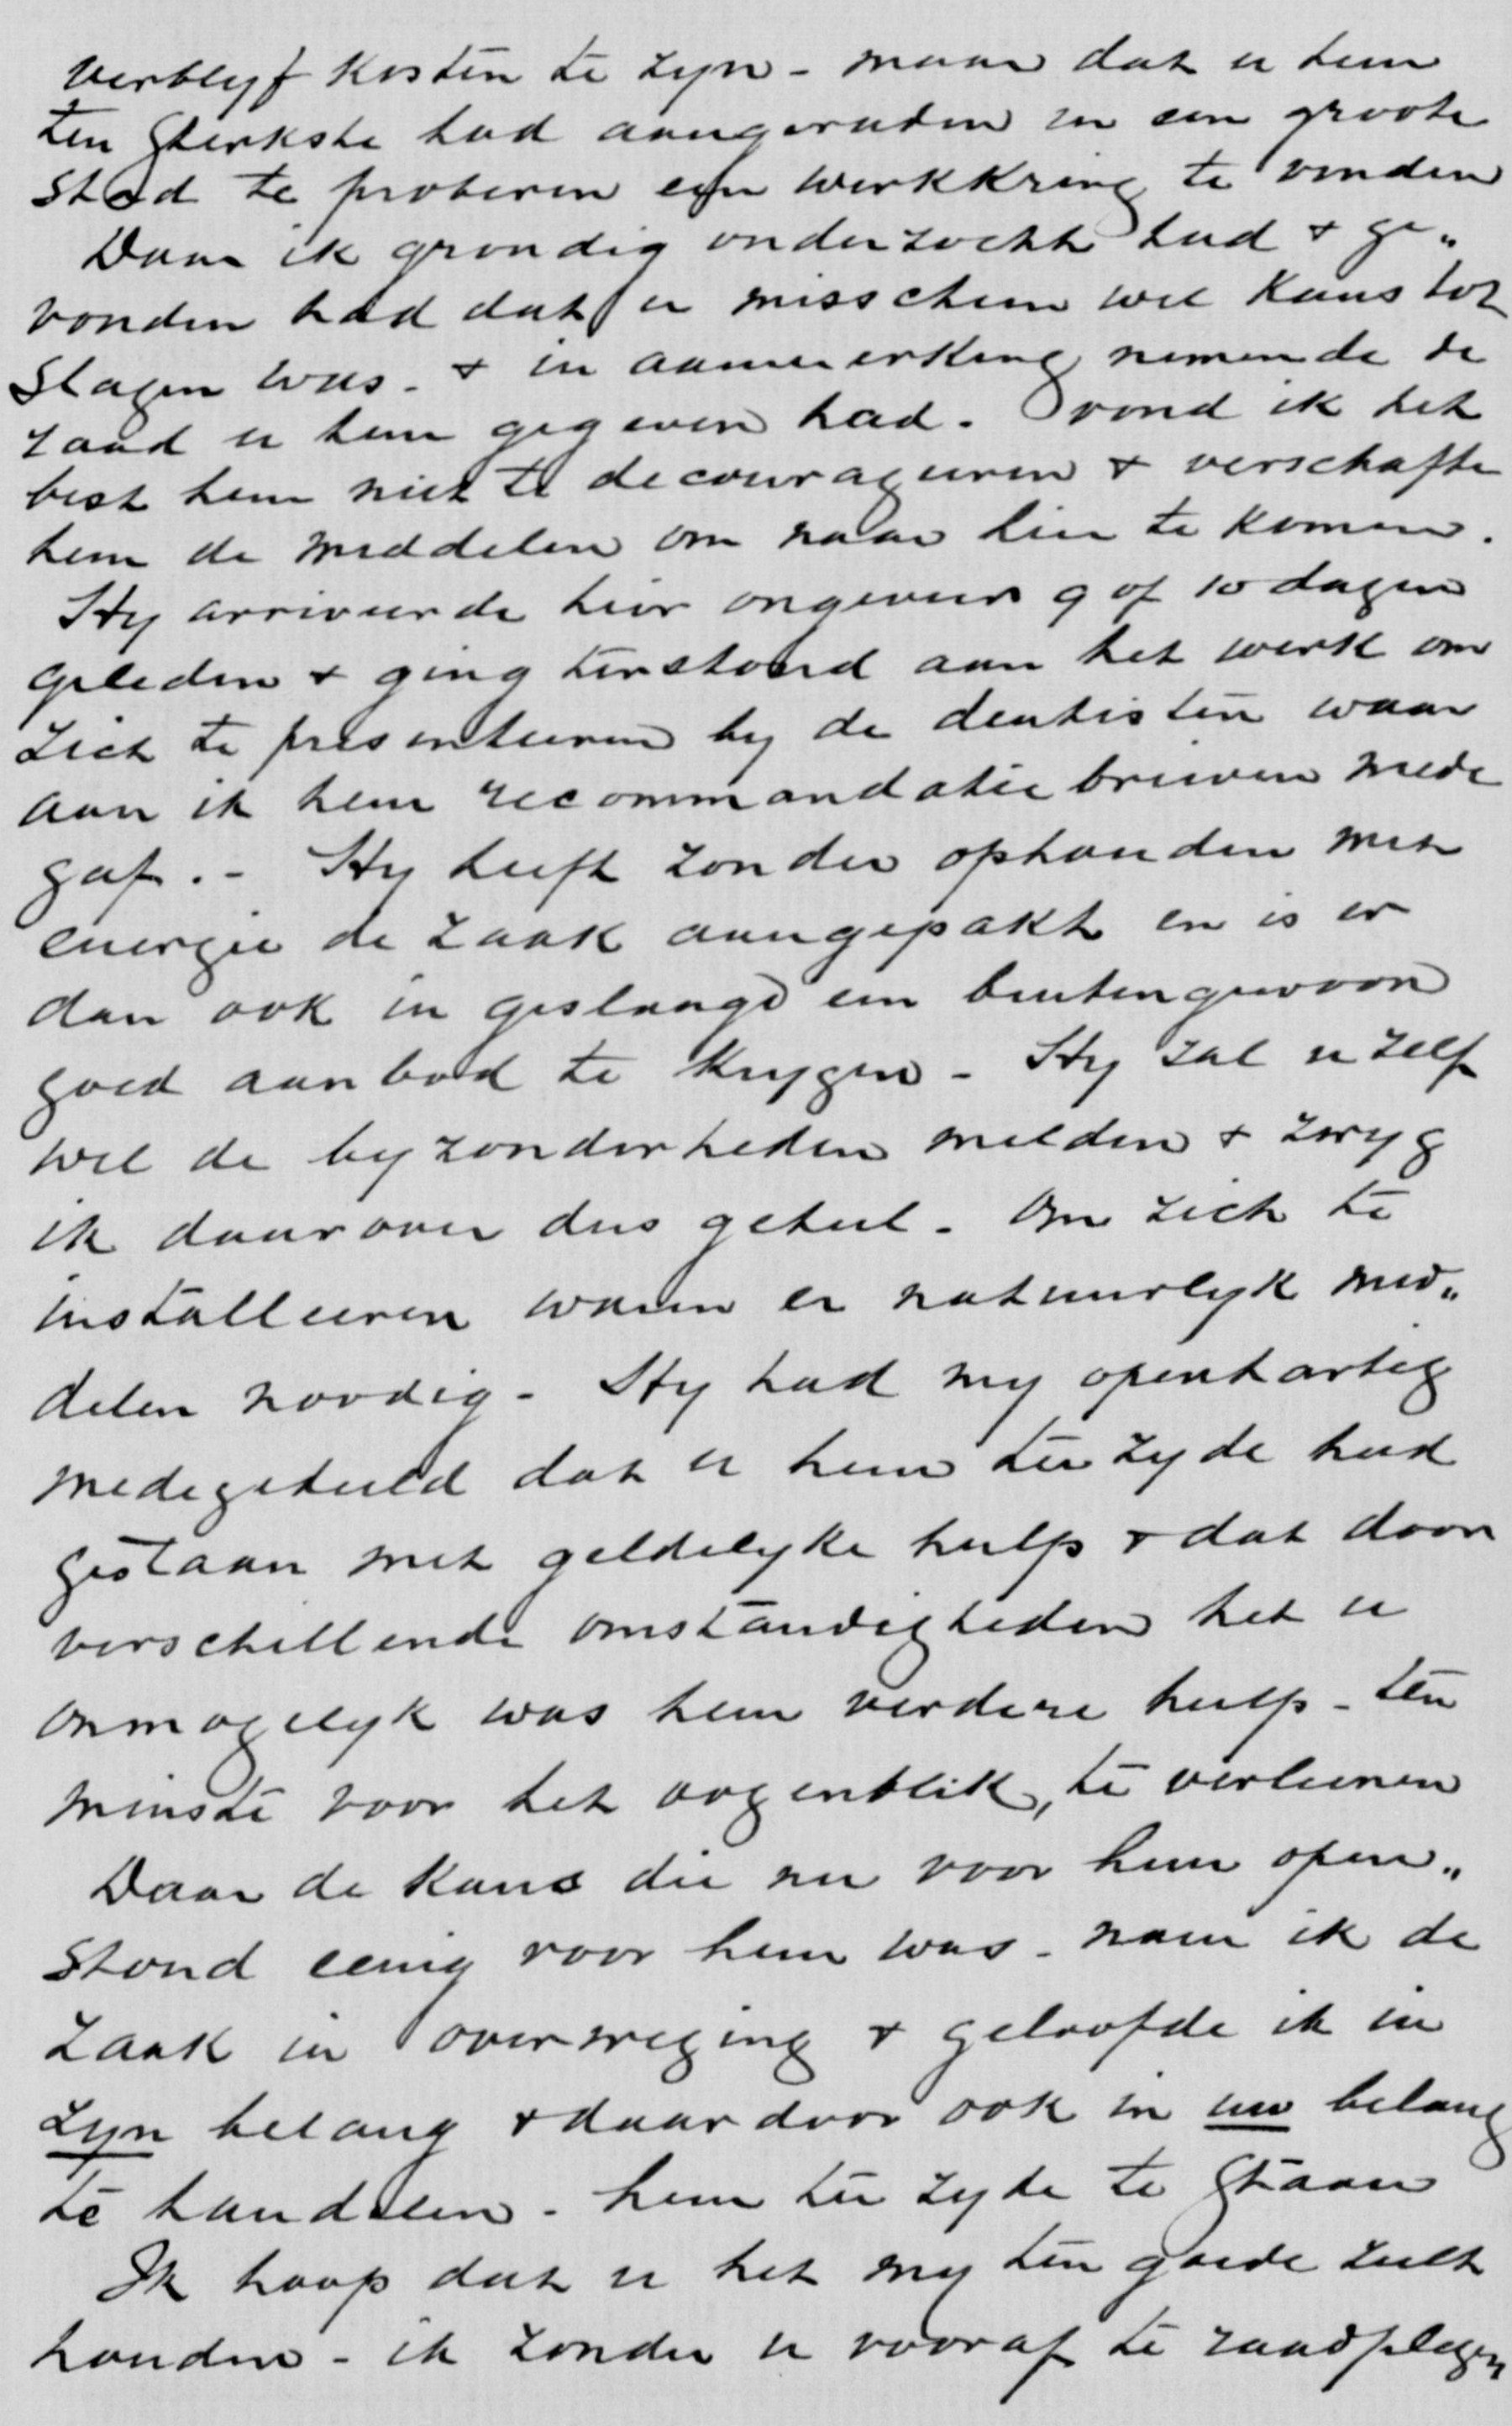 verblyf kosten te zyn - maar dat u hem
ten sterkste had aangeraden in een groote
stad te proberen een werkkring te vinden
Daar ik grondig onderzocht had + ge„
vonden had dat er misschien wel kans tot
slagen was - + in aanmerking nemende de
raad u hem gegeven had. vond ik het
best hem niet te decourageeren + verschafte
hem de middelen om naar hier te komen.
Hy arriveerde hier ongeveer 9 of 10 dagen
geleden + ging terstond aan het werk om
zich te presenteeren by de dentisten waar
aan ik hem recommandatie brieven mede
gaf. - Hy heeft zonder ophouden met
energie de zaak aangepakt en is er
dan ook in geslaagd een buitengewoon
goed aanbod te krygen - Hy zal u zelf
wel de byzonderheden melden + zwyg
ik daarover dus geheel - Om zich te
installeeren waren er natuurlyk mid„
delen noodig - Hy had my openhartig
medegedeeld dat u hem ter zyde had
gestaan met geldelyke hulp + dat door
verschillende omstandigheden het u
onmogelyk was hem verdere hulp - ten
minste voor het oogenblik, te verleenen
Daar de kans die nu voor hem open„
stond eenig voor hem was - nam ik de
zaak in overweging + geloofde ik in
zyn belang + daardoor ook in uw belang
te handelen - hem ter zyde te staan
Ik hoop dat u het my ten goede zult
houden - ik zonder u vooraf te raadplegen